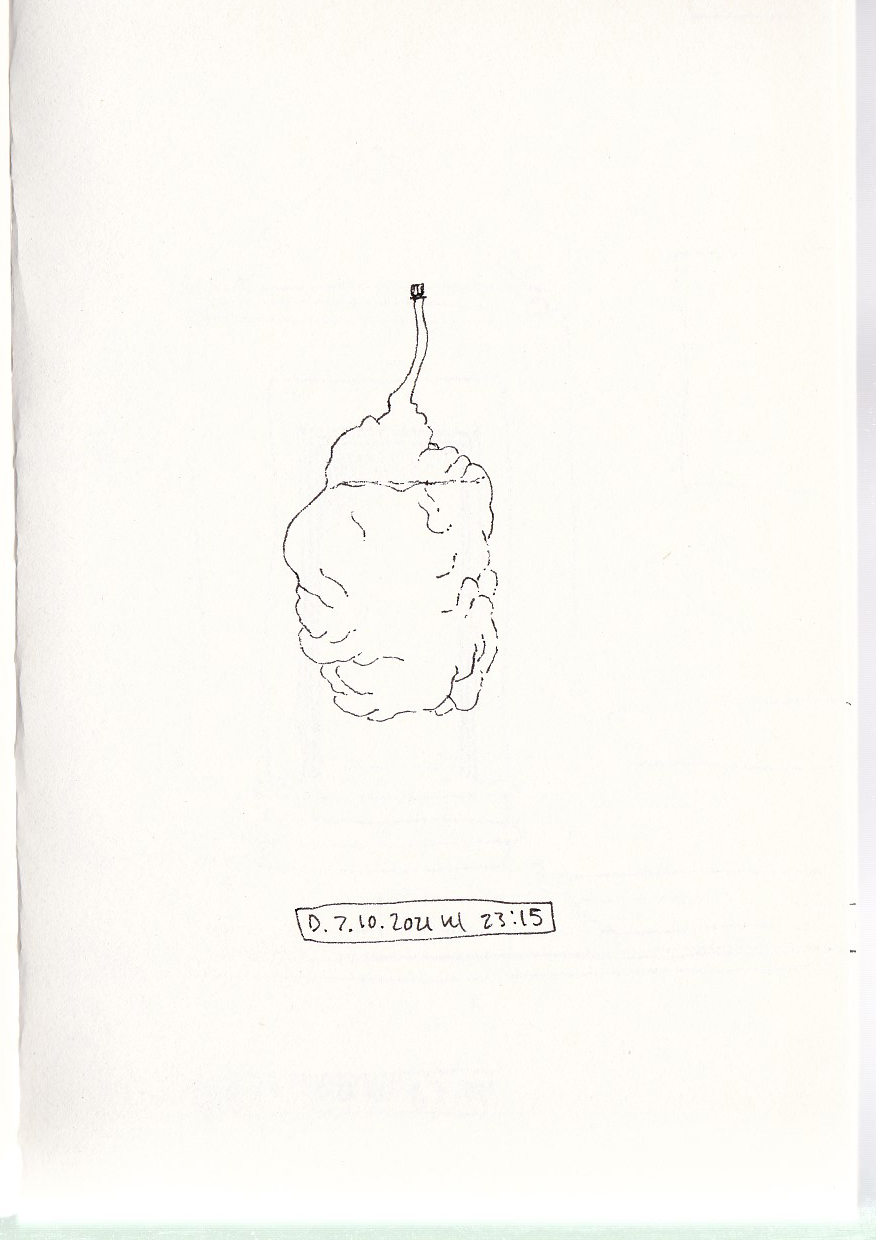 D. 7.10.2021 kl 23:15